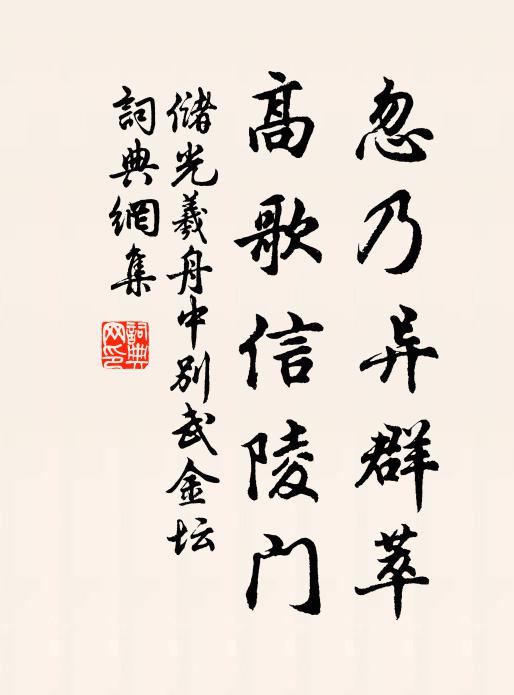 忽乃异群萃
高歌信陵门
儲光羲舟中别武金坛
詞典網集
詞典网印